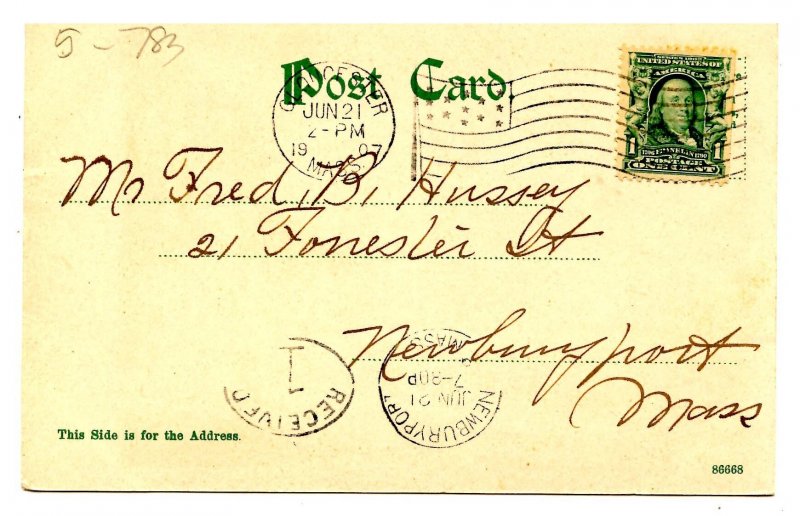 5-783
Post Card.
GLOUCESTER
JUN 21
2-PM
19 07
MASS.
SERIES 1902
UNITED STATES OF
AMERICA
1 1
1706 FRANKLIN 1790
POSTAGE
ONE CENT
Mr Fred, B, Hussey
21 Forrester St
Newburyport
Mass
1
RECEIVED
NEWBURYPORT
JUN 21
7-30P
MASS.
This Side is for the Address.
86668